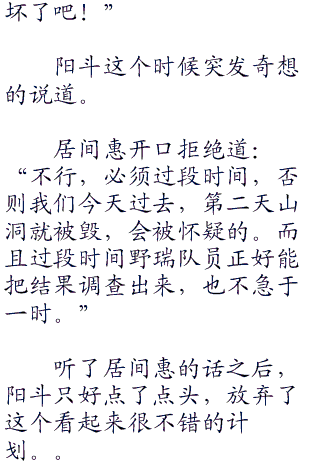 坏了吧！”
阳斗这个时候突发奇想
的说道。
居间惠开口拒绝道：
“不行，必须过段时间，否
则我们今天过去，第二天山
洞就被毁，会被怀疑的。而
且过段时间野瑞队员正好能
把结果调查出来，也不急于
一时。”
听了居间惠的话之后，
阳斗只好点了点头，放弃了
这个看起来很不错的计
划。。